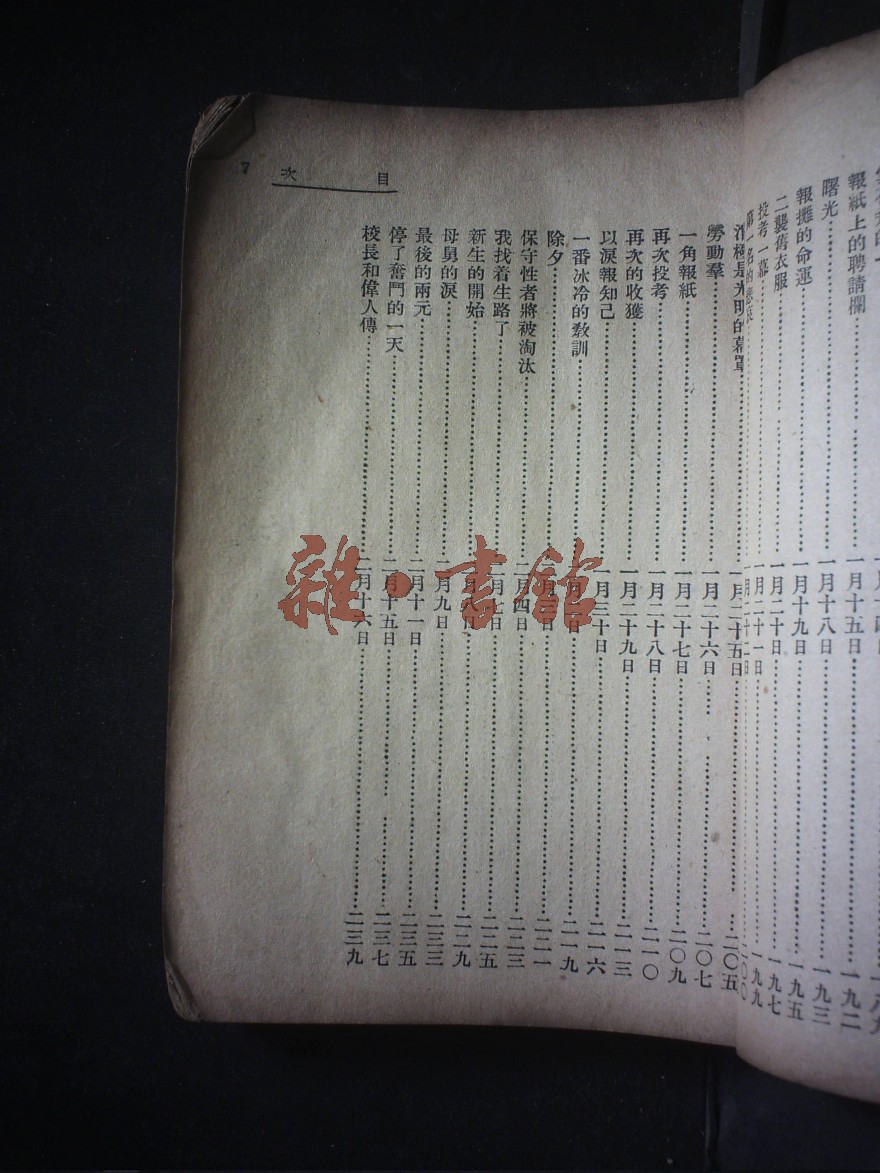 報紙上的聘請欄 一月十五日 一九二
曙光 一月十八日 一九三
報攤的命運 一月十九日 一九五
二襲舊衣服 一月二十日 一九七
投考一幕 一月二十一日 一九九
第一名的 一月二十二日 二〇〇
目次 7
消極是光明的幕罩 一月二十五日 二〇五
勞動羣 一月二十六日 二〇七
一角報紙 一月二十七日 二〇九
再次投考 一月二十八日 二一〇
再次的收獲 一月二十九日 二一三
以淚報知己 一月三十日 二一六
一番冰冷的教訓 月 日 二一九
除夕 二月 日 二二一
保守性者將被淘汰 二月四日 二二三
我找着生路了 月七日 二二五
新生的開始 月八日 二二九
母舅的淚 月九日 二三三
最後的兩元 二月十一日 二三五
停了奮鬥的一天 二月十五日 二三七
校長和偉人傳 二月十六日 二三九
雜·書館